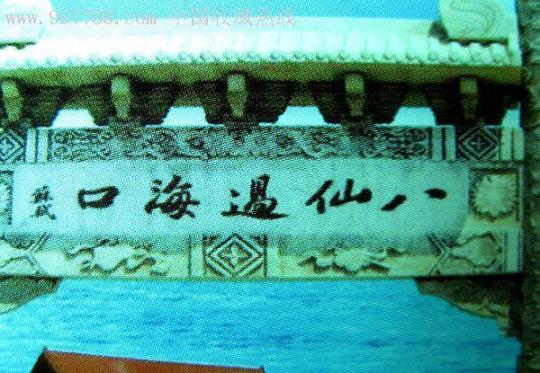 www.997788.com 中国收藏热线
八仙過海口
蘇軾